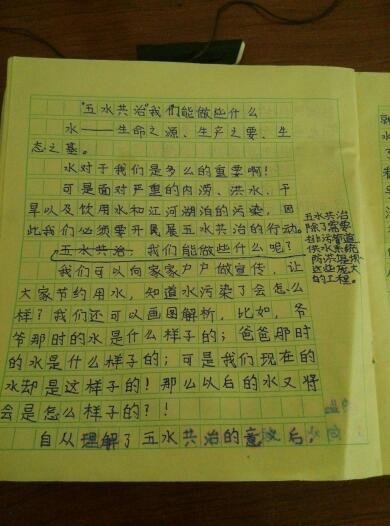 “五水共治”我们能做些什么
水——生命之源、生产之要、生
态之基。
水对于我们是多么的重要啊!
可是面对严重的内涝、洪水、干
旱以及饮用水和江河湖泊的污染,因
此我们必须要开展五水共治的行动。
五水共治 我们能做些什么呢?
我们可以向家家户户做宣传,让
大家节约用水,知道水污染了会怎么
样?我们还可以画图解析,比如,爷
爷那时的水是什么样子的;爸爸那时
的水是什么样子的;可是我们现在的
水却是这样子的!那么以后的水又将
会是怎么样子的?!
自从理解了五水共治的意义后,
五水共治
除了需要
排污管道
供水系统
防洪堤坝
这些庞大
的工程。